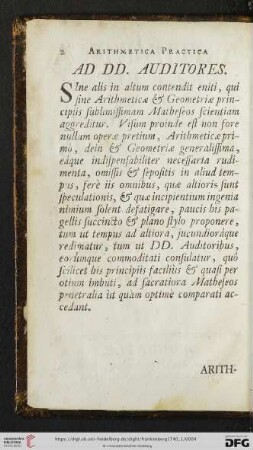 2 ARITHMETICA PRACTICA
AD DD. AUDITORES.
SIne alis in altum contendit eniti, qui
sine Arithmeticæ & Geometriæ prin-
cipiis sublimissimam Matheseos scientiam
aggreditur. Visum proinde est non fore
nullum operæ pretium, Arithmeticæ pri-
mò, dein & Geometriæ generalissima,
eáque indispensabiliter necessaria rudi-
menta, omissis & sepositis in aliud tem-
pus, ferè iis omnibus, quæ altioris sunt
speculationis, & quæ incipientium ingenia
nimium solent defatigare, paucis his pa-
gellis succincto & plano stylo proponere,
tum ut tempus ad altiora, jucundioráque
redimatur, tum ut DD. Auditoribus,
eorumque commoditati consulatur, quò
scilicet his principiis faciliùs & quasi per
otium imbuti, ad sacratiora Matheseos
penetralia ut quàm optimè comparati ac-
cedant.
ARITH-
https://digi.ub.uni-heidelberg.de/diglit/frankenberg1740_1/0004
DFG